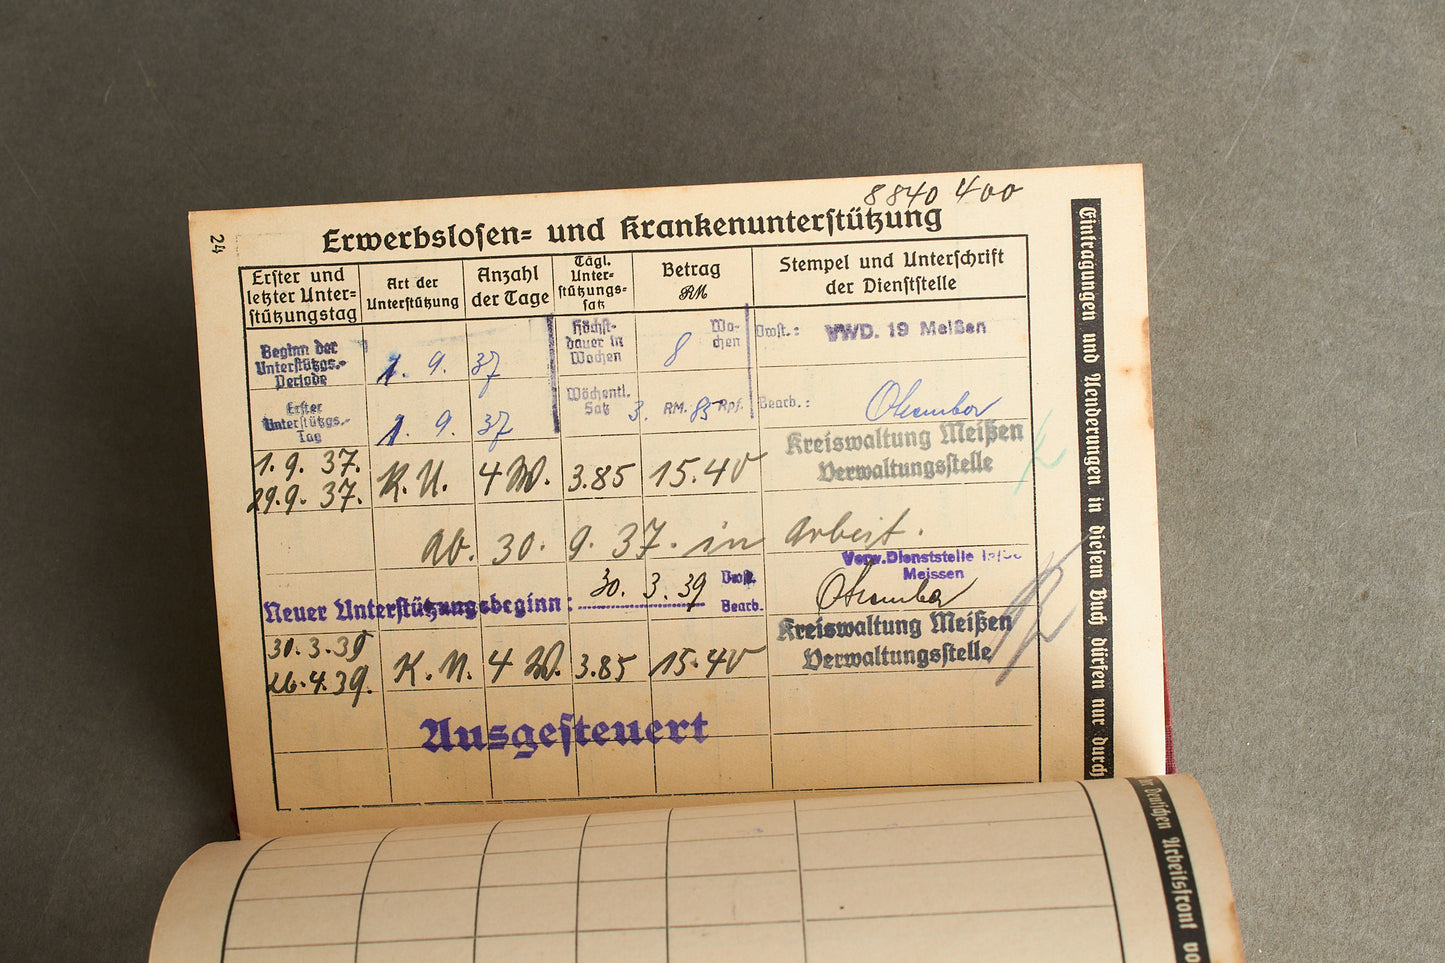 8840 400
24
Erwerbslosen- und Krankenunterstützung
Erster und letzter Unter-stützungstag
Art der Unterstützung
Anzahl der Tage
Tägl. Unter-stützungs-satz
Betrag RM
Stempel und Unterschrift der Dienststelle
Beginn der Unterstützgs.-Periode
1. 9. 37
Höchst-dauer in Wochen
8 Wo-chen
Dwst.: VWD. 19 Meißen
Erster Unterstützgs.-Tag
1. 9. 37
Wöchentl. Satz
3. RM. 85 Rpf.
Bearb.:
Kreiswaltung Meißen
Verwaltungsstelle
1. 9. 37.
29. 9. 37.
K. U. 4 W. 3.85 15.40
ab. 30. 9. 37. in Arbeit.
Verw.Dienststelle
Meissen
Neuer Unterstützungsbeginn: 30. 3. 39 Dwst.
Bearb.
Kreiswaltung Meißen
Verwaltungsstelle
30. 3. 39
26. 4. 39.
K. U. 4 W. 3.85 15.40
Ausgesteuert
Eintragungen und Aenderungen in diesem Buch dürfen nur durch
der Deutschen Arbeitsfront